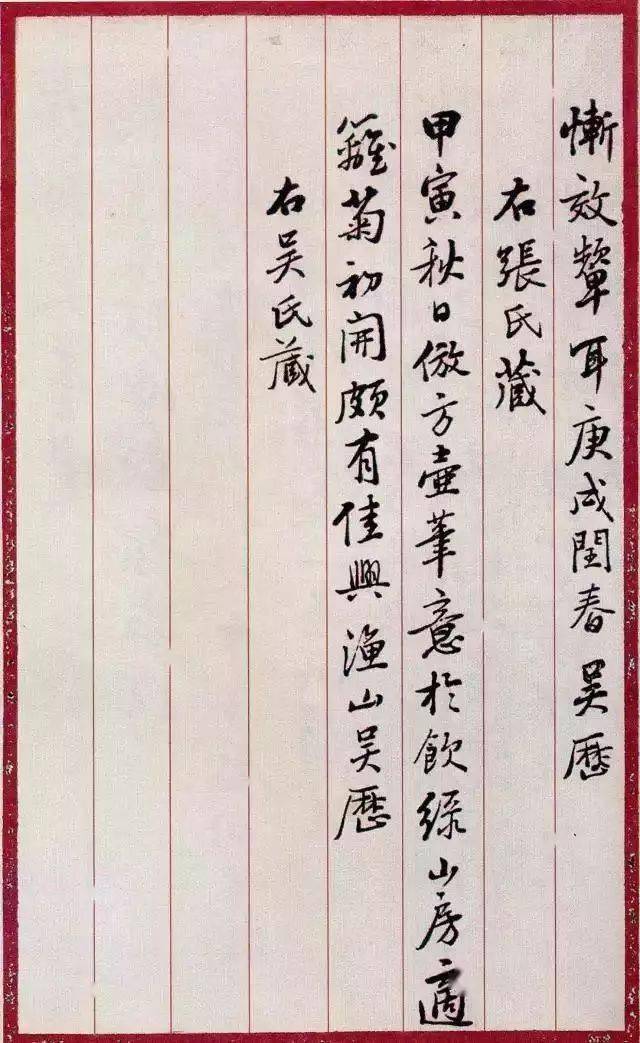 慚效顰耳庚戌閏春吳歷
右張氏藏
甲寅秋日倣方壺筆意於飲綠山房適
籬菊初開頗有佳興漁山吳歷
右吳氏藏